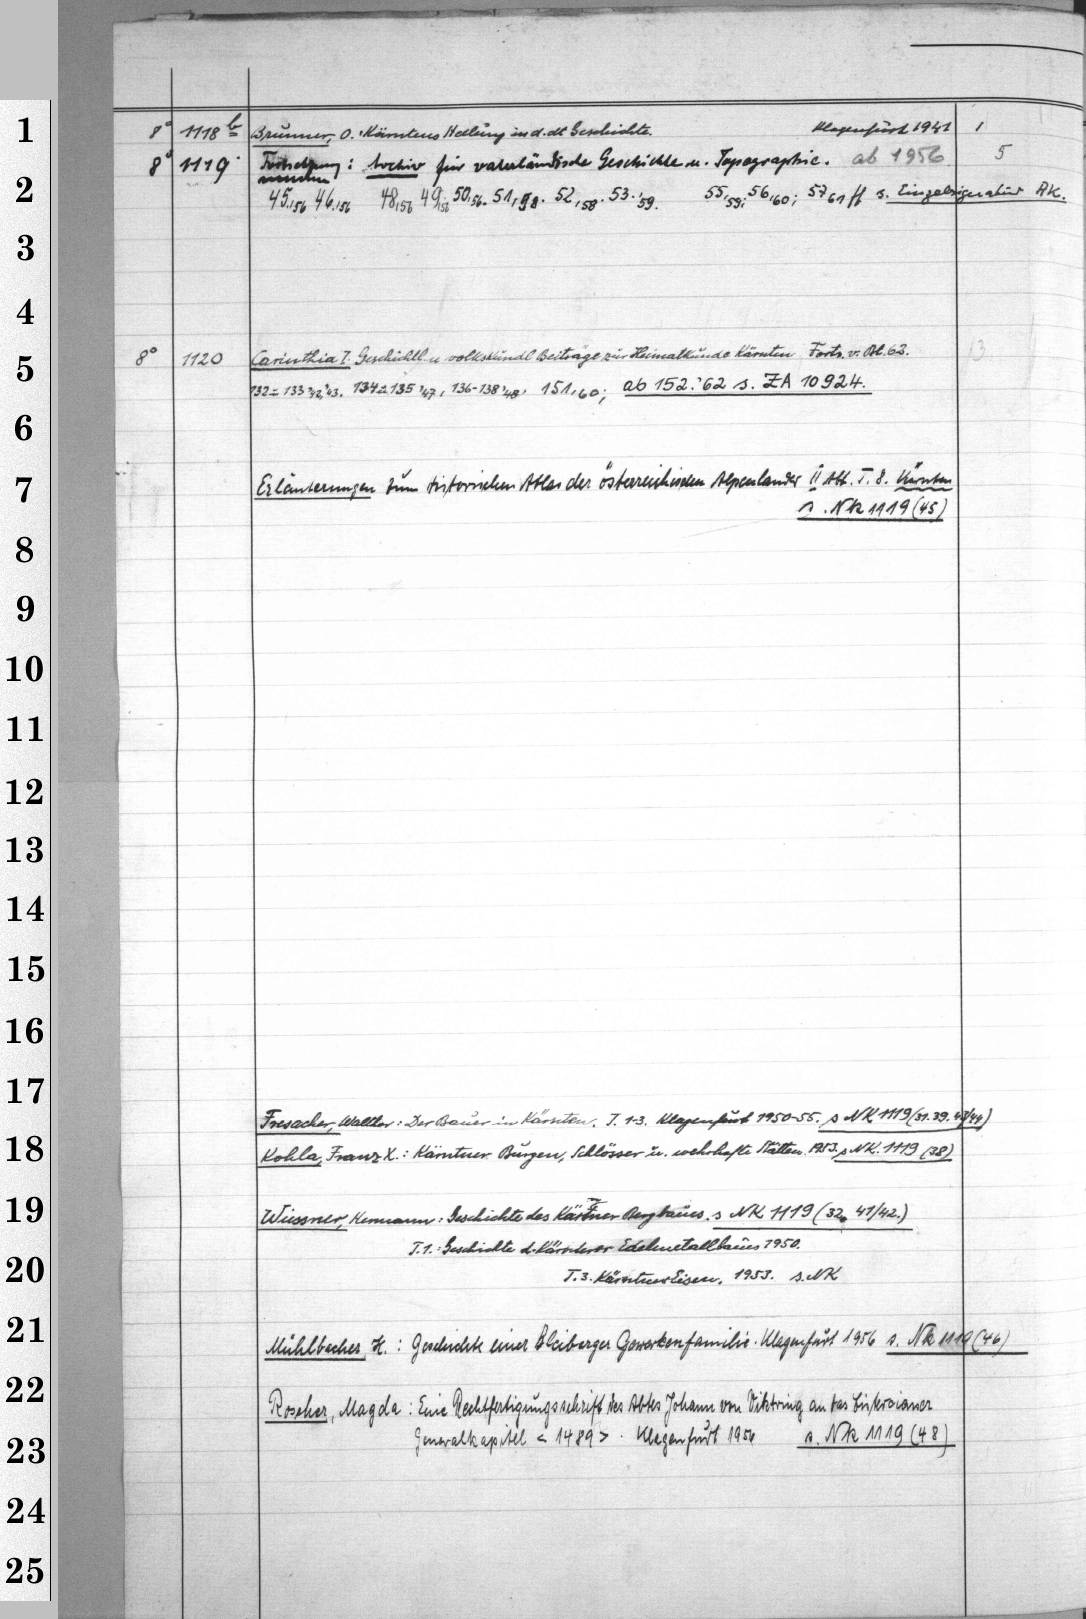 1
8° 1118 b Brunner, O.: Kärntens Stellung in d. dt. Geschichte. Klagenfurt 1941 1
8° 1119 Fortsetzung: Archiv für vaterländische Geschichte u. Topographie. ab 1956 5
2
45,'56 46,'56 48,'56 49,'56 50,'56. 51,'58. 52,'58. 53.'59. 55,'59; 56,'60; 57 61 ff s. Einzelsignatur AK.
3
4
5
8° 1120 Carinthia I. Geschichtl. u. volkskundl. Beiträge zur Heimatkunde Kärnten Forts. v. Bl. 62. 13
132 - 133 '42,'43. 134 - 135 '47, 136-138 '48. 151,'60; ab 152.'62 s. ZA 10924.
6
7
Erläuterungen zum historischen Atlas der österreichischen Alpenländer II Abt. T. 8. Kärnten
s. NK 1119 (45)
8
9
10
11
12
13
14
15
16
17
Fresacher, Walther: Der Bauer in Kärnten. T. 1-3. Klagenfurt 1950-55. s NK 1119 (31. 39. 43/44)
18
Kohla, Franz X.: Kärntner Burgen, Schlösser u. wehrhafte Stätten. 1953. s NK. 1119 (38)
19
Wiessner, Hermann: Geschichte des Kärntner Bergbaues. s NK 1119 (32. 41/42.)
T. 1.: Geschichte d. Kärntner Edelmetallbaues 1950.
20
T. 3. Kärntner Eisen. 1953. s. NK
21
Mühlbacher H.: Geschichte einer Bleiberger Gewerkenfamilie. Klagenfurt 1956 s. NK 1119 (46)
22
Roscher, Magda: Eine Rechtfertigungsschrift des Abtes Johann von Viktring an das Zisterzienser
23
Generalkapitel < 1489 >. Klagenfurt 1956 s. NK 1119 (48)
24
25